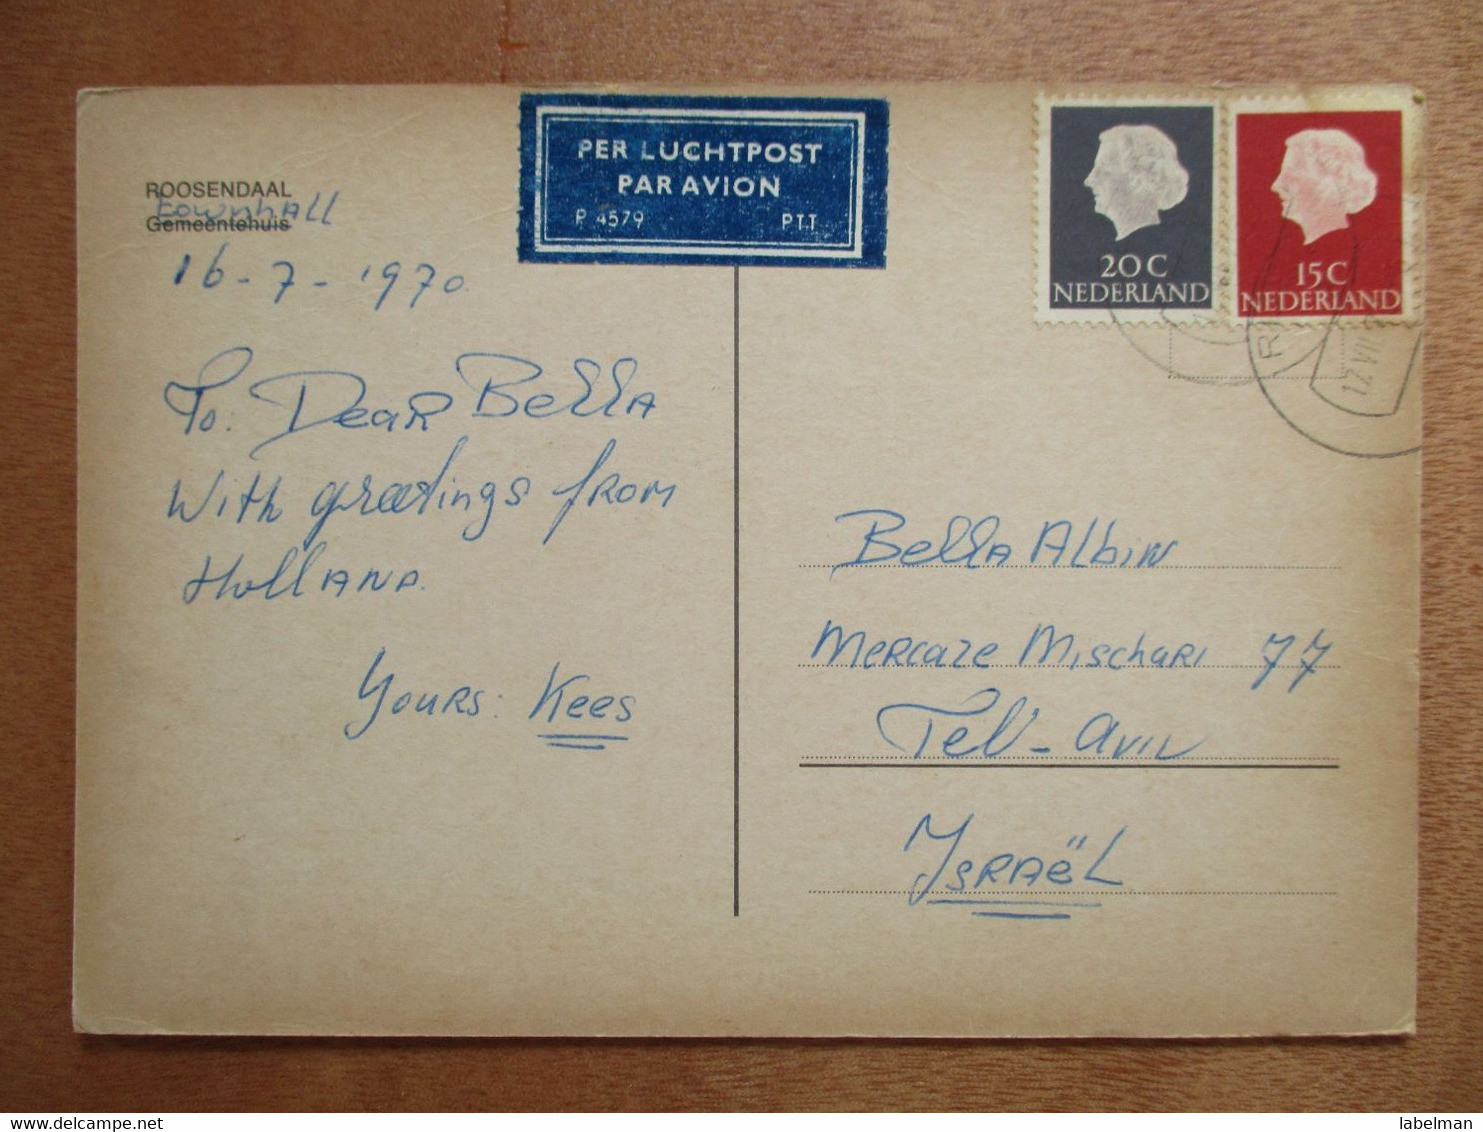 PER LUCHTPOST
PAR AVION
P 4579 PTT
20 C
NEDERLAND
15 C
NEDERLAND
17 VII
ROOSENDAAL
Townhall
Gemeentehuis
16 - 7 - 1970
To: Dear Bella
With greetings from
Holland.
Yours: Kees
Bella Albin
Mercaze Mischari 77
Tel-Aviv
Israël
© delcampe.net
labelman